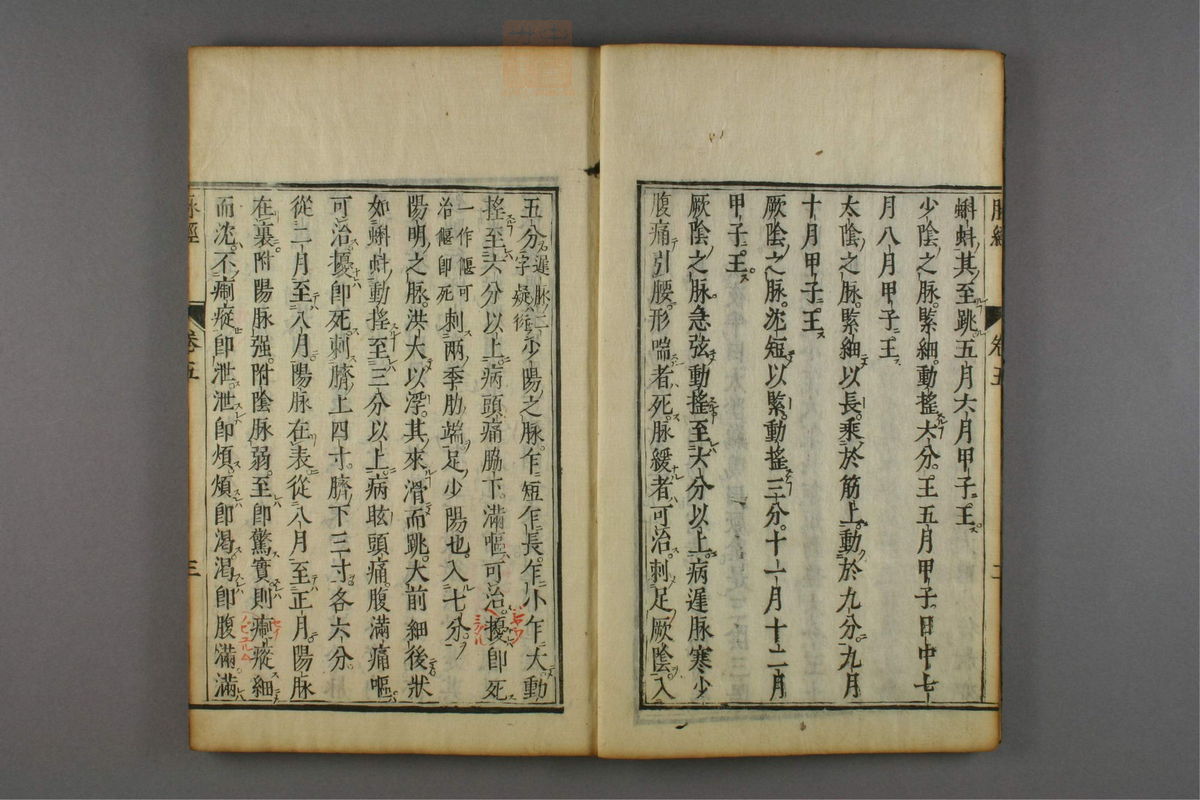 脉經
卷五
二
蝌蚪其至跳五月六月甲子王
少陰之脉緊細動搖六分王五月甲子日中七
月八月甲子王
太陰之脉緊細以長乘於筋上動於九分九月
十月甲子王
厥陰之脉沈短以緊動搖三分十一月十二月
甲子王
厥陰之脉急弦動搖至六分以上病遲脉寒少
腹痛引腰形喘者死脉緩者可治刺足厥陰入
五分遲脉二字疑衍少陽之脉乍短乍長乍小乍大動
搖至六分以上病頭痛脇下滿嘔可治擾即死
一作傴可治傴即死刺兩季肋端足少陽也入七分
陽明之脉洪大以浮其來滑而跳大前細後狀
如蝌蚪動搖至三分以上病眩頭痛腹滿痛嘔
可治擾即死刺臍上四寸臍下三寸各六分
從二月至八月陽脉在表從八月至正月陽脉
在裏附陽脉强附陰脉弱至即驚實則瘛瘲細
而沈不瘛瘲即泄泄即煩煩即渴渴即腹滿滿
脉經
卷五
三